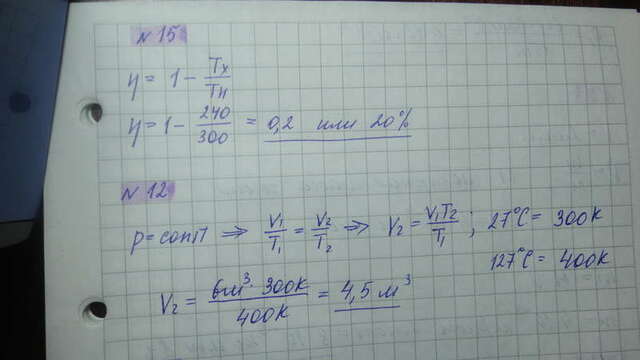 № 15
η = 1 - Tх/Tн
η = 1 - 240/300 = 0,2 или 20%
№ 12
p = const ⇒ V₁/T₁ = V₂/T₂ ⇒ V₂ = V₁T₂/T₁; 27°C = 300K
127°C = 400K
V₂ = 6м³ · 300K/400K = 4,5 м³